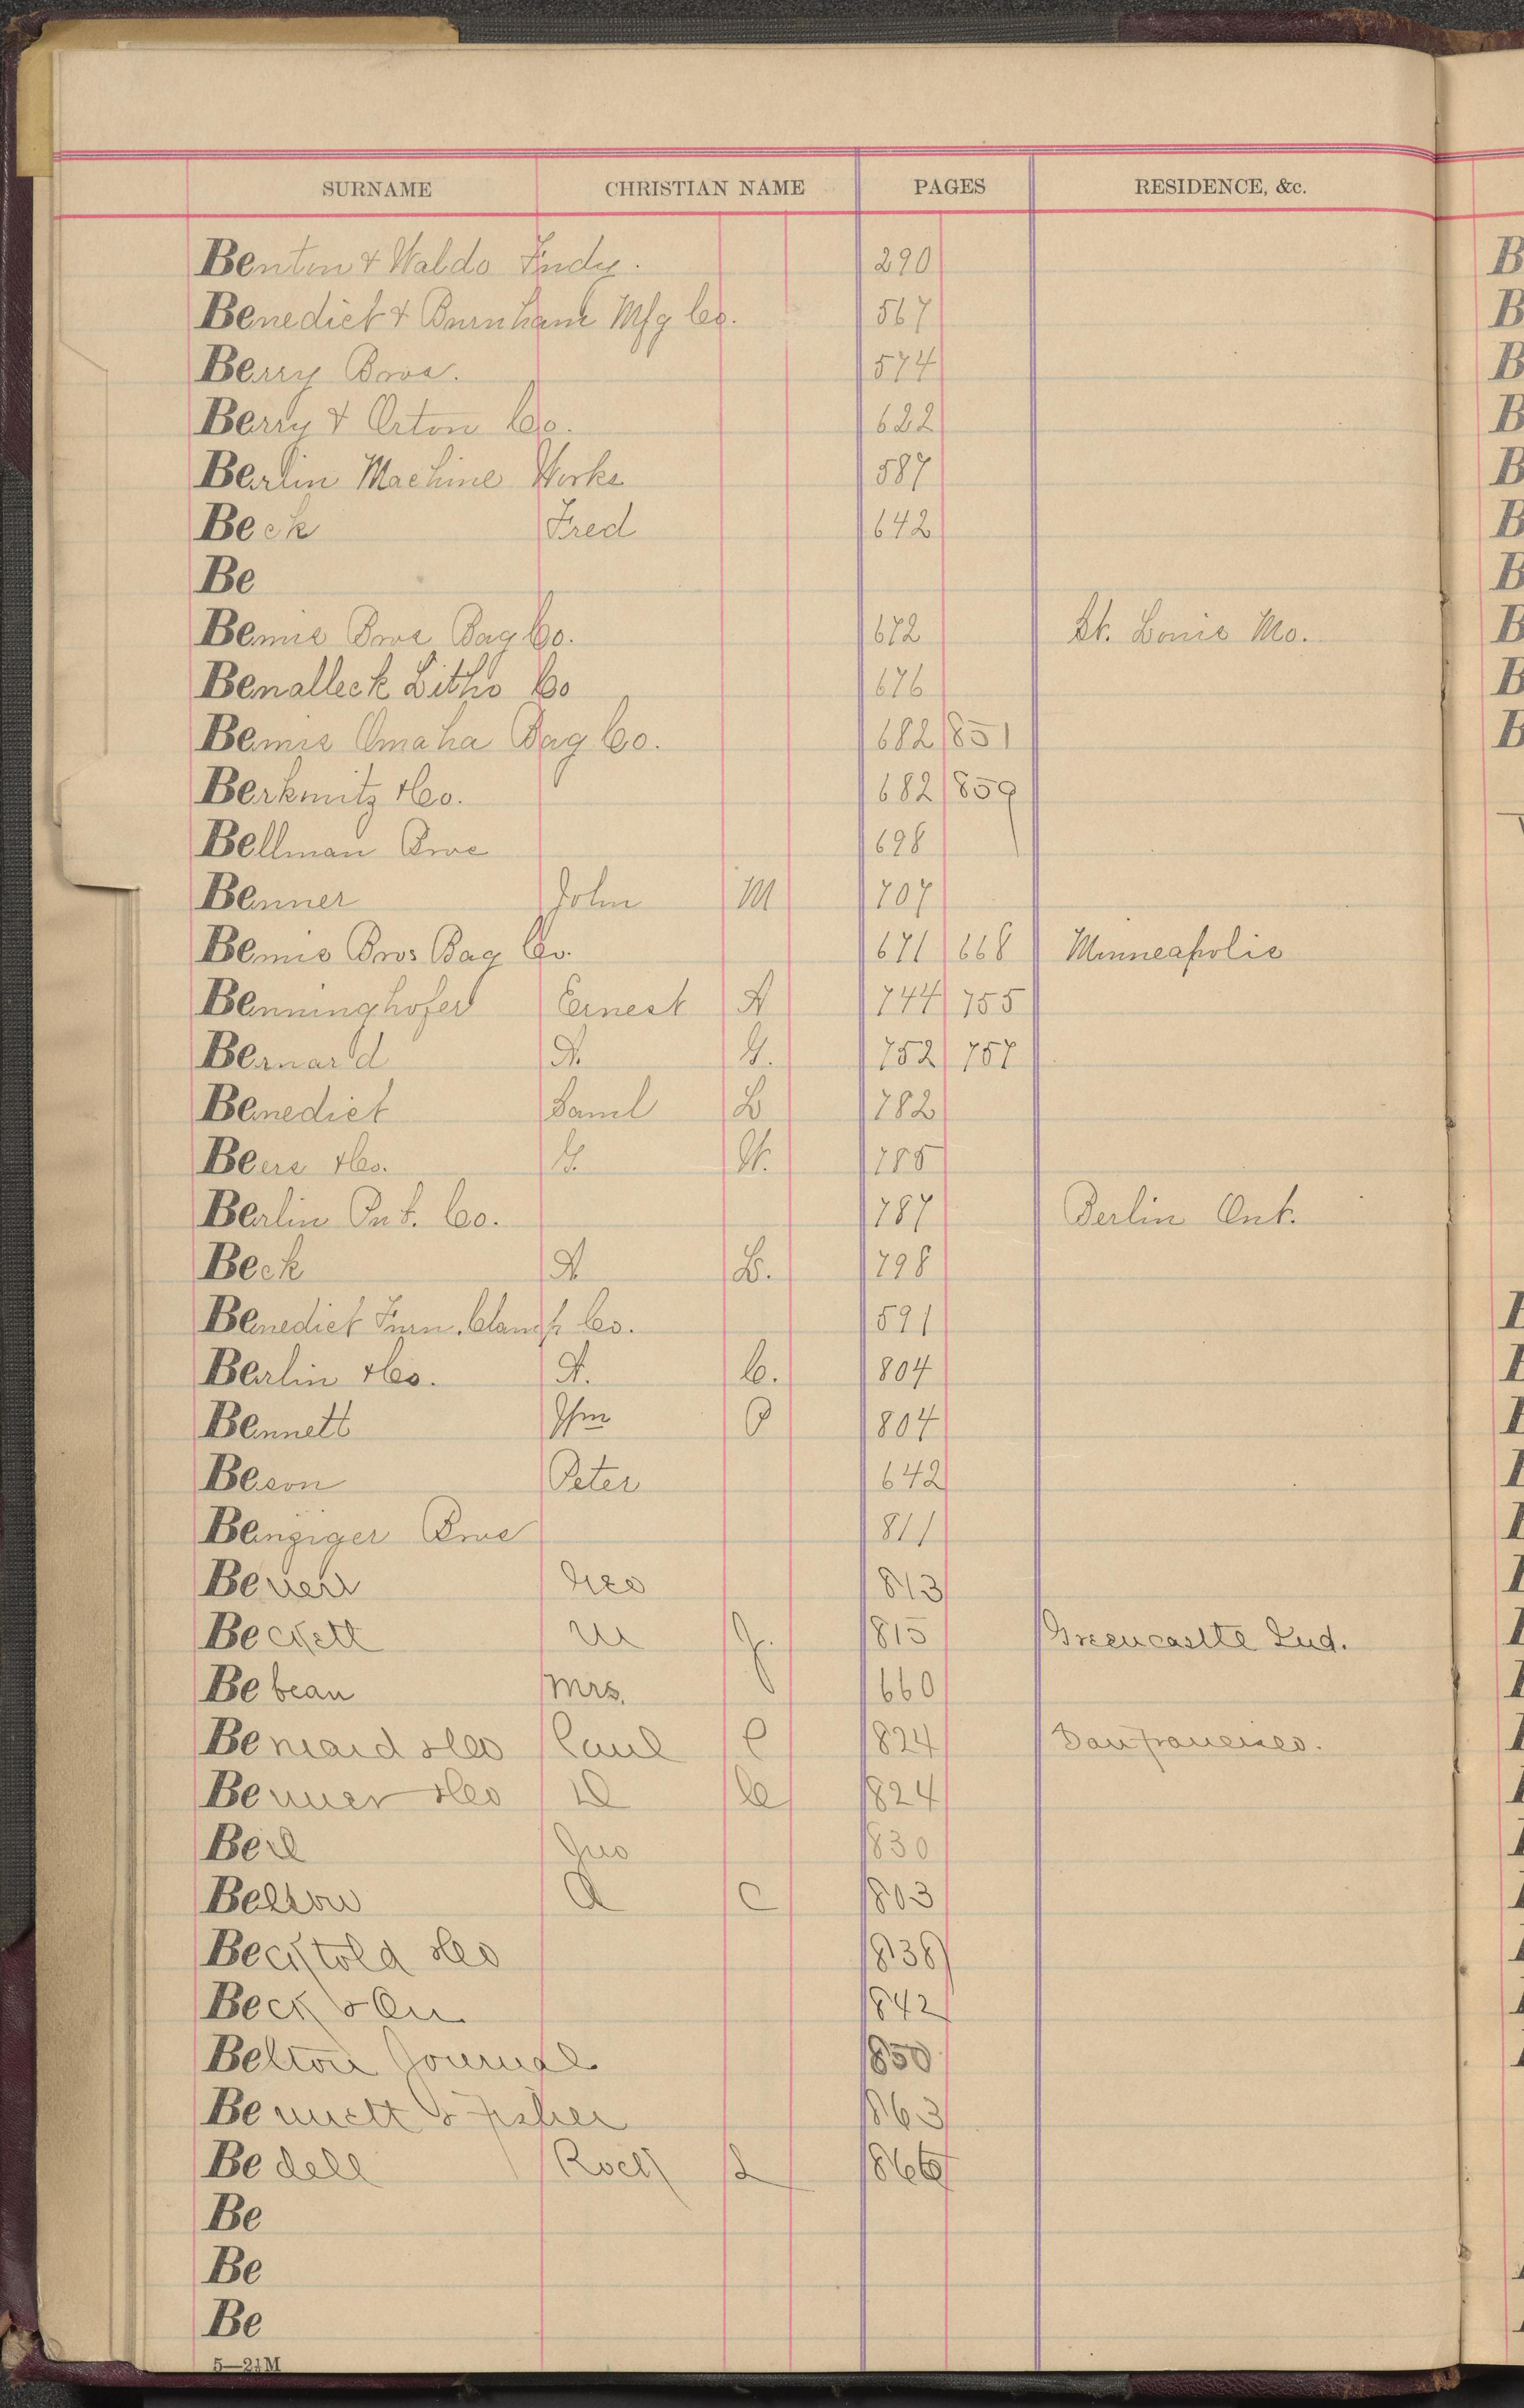 SURNAME CHRISTIAN NAME PAGES RESIDENCE, &c.
Benton & Waldo Indy. 290
Benedict & Burnham Mfg Co. 567
Berry Bros. 574
Berry & Orton Co. 622
Berlin Machine Works 587
Beck Fred 642
Be
Bemis Bros Bag Co. 672 St. Louis Mo.
Benalleck Litho Co 676
Bemis Omaha Bag Co. 682 851
Berkmitz & Co. 682 859
Bellman Bros 698
Benner John M 707
Bemis Bros Bag Co. 671 668 Minneapolis
Benninghofer Ernest A 744 755
Bernard A. G. 752 757
Benedict Saml L 782
Beers & Co. G. W. 785
Berlin Pub. Co. 787 Berlin Ont.
Beck A L. 798
Benedict Furn. Clamp Co. 591
Berlin & Co. A. C. 804
Bennett Wm P 804
Beson Peter 642
Benziger Bros 811
Geo 813
Beckett W J. 815 Greencastle Ind.
Bebeau Mrs. 660
Bernard & Co Paul C 824 San Francisco.
Benner & Co D C 824
Beil Jno 830
A C 803
Becktold & Co 838
Beck & 842
Belton Journal 850
Bennett & Fisher 863
Bedell Rock L 866
Be
Be
Be
5—21M
B
B
B
B
B
B
B
B
B
B